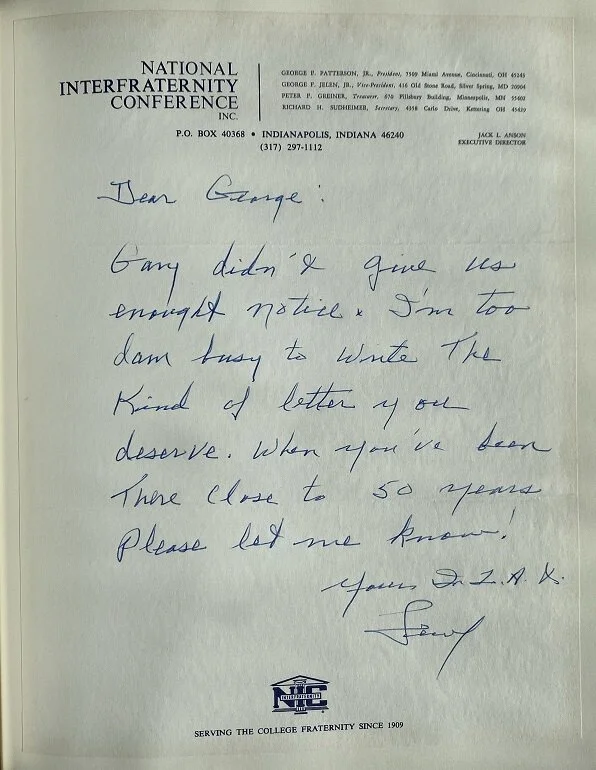 NATIONAL
INTERFRATERNITY
CONFERENCE
INC.
GEORGE F. PATTERSON, JR., President, 7509 Miami Avenue, Cincinnati, OH 45243
GEORGE F. JELEN, JR., Vice-President, 416 Old Stone Road, Silver Spring, MD 20904
PETER F. GREINER, Treasurer, 670 Pillsbury Building, Minneapolis, MN 55402
RICHARD H. SUDHEIMER, Secretary, 4058 Carlo Drive, Kettering OH 45429
P.O. BOX 40368 • INDIANAPOLIS, INDIANA 46240
(317) 297-1112
JACK L. ANSON
EXECUTIVE DIRECTOR
Dear George:
Gary didn't give us
enought notice. I'm too
dam busy to write The
Kind of letter you
deserve. When you've been
There close to 50 years
Please let me know!
Yours In Z.A.X.
NIC
INTERFRATERNITY
SERVING THE COLLEGE FRATERNITY SINCE 1909